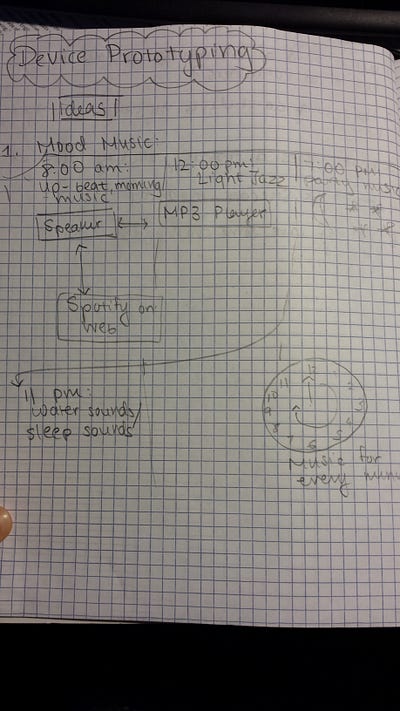 Device Prototyping
Ideas
1. Mood Music:
8:00 am:
up-beat, morning
music
12:00 pm:
Light Jazz
7:00 pm
party music
Speaker
MP3 Player
Spotify on
Web
11 pm:
water sounds/
sleep sounds
12
1
2
3
4
5
6
7
8
9
10
11
Music for
every